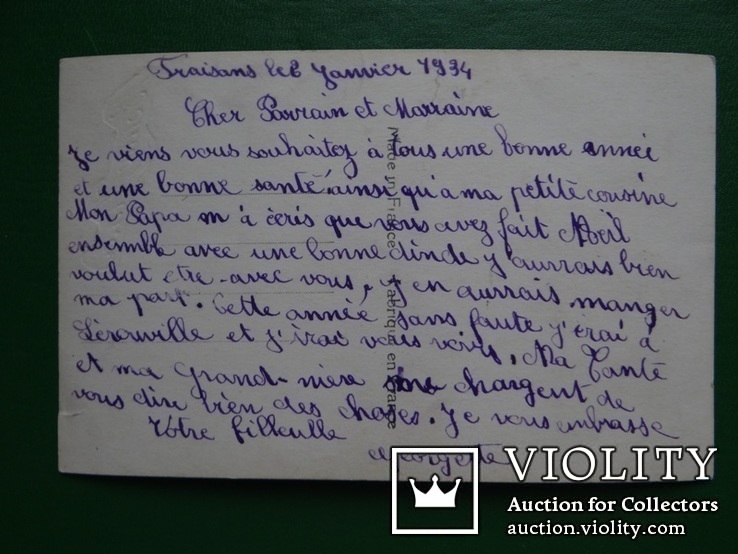 Fraisans le 2 Janvier 1934
Cher Parrain et Marraine
Je viens vous souhaitez à tous une bonne année
et une bonne santé, ainsi qu'a ma petite cousine
Mon Papa m'à écris que vous avez fait Noël
ensemble avec une bonne dinde j'aurrais bien
voulut etre avec vous, j'en aurrais manger
ma part. Cette année sans faute j'irai à
Lérouville et j'irai vous voirs. Ma Tante
et ma Grand-mère me chargent de
vous dire bien des choses. Je vous embrasse
Votre filleulle
Georgette
Made in France
Fabriqué en France
VIOLITY
Auction for Collectors
auction.violity.com